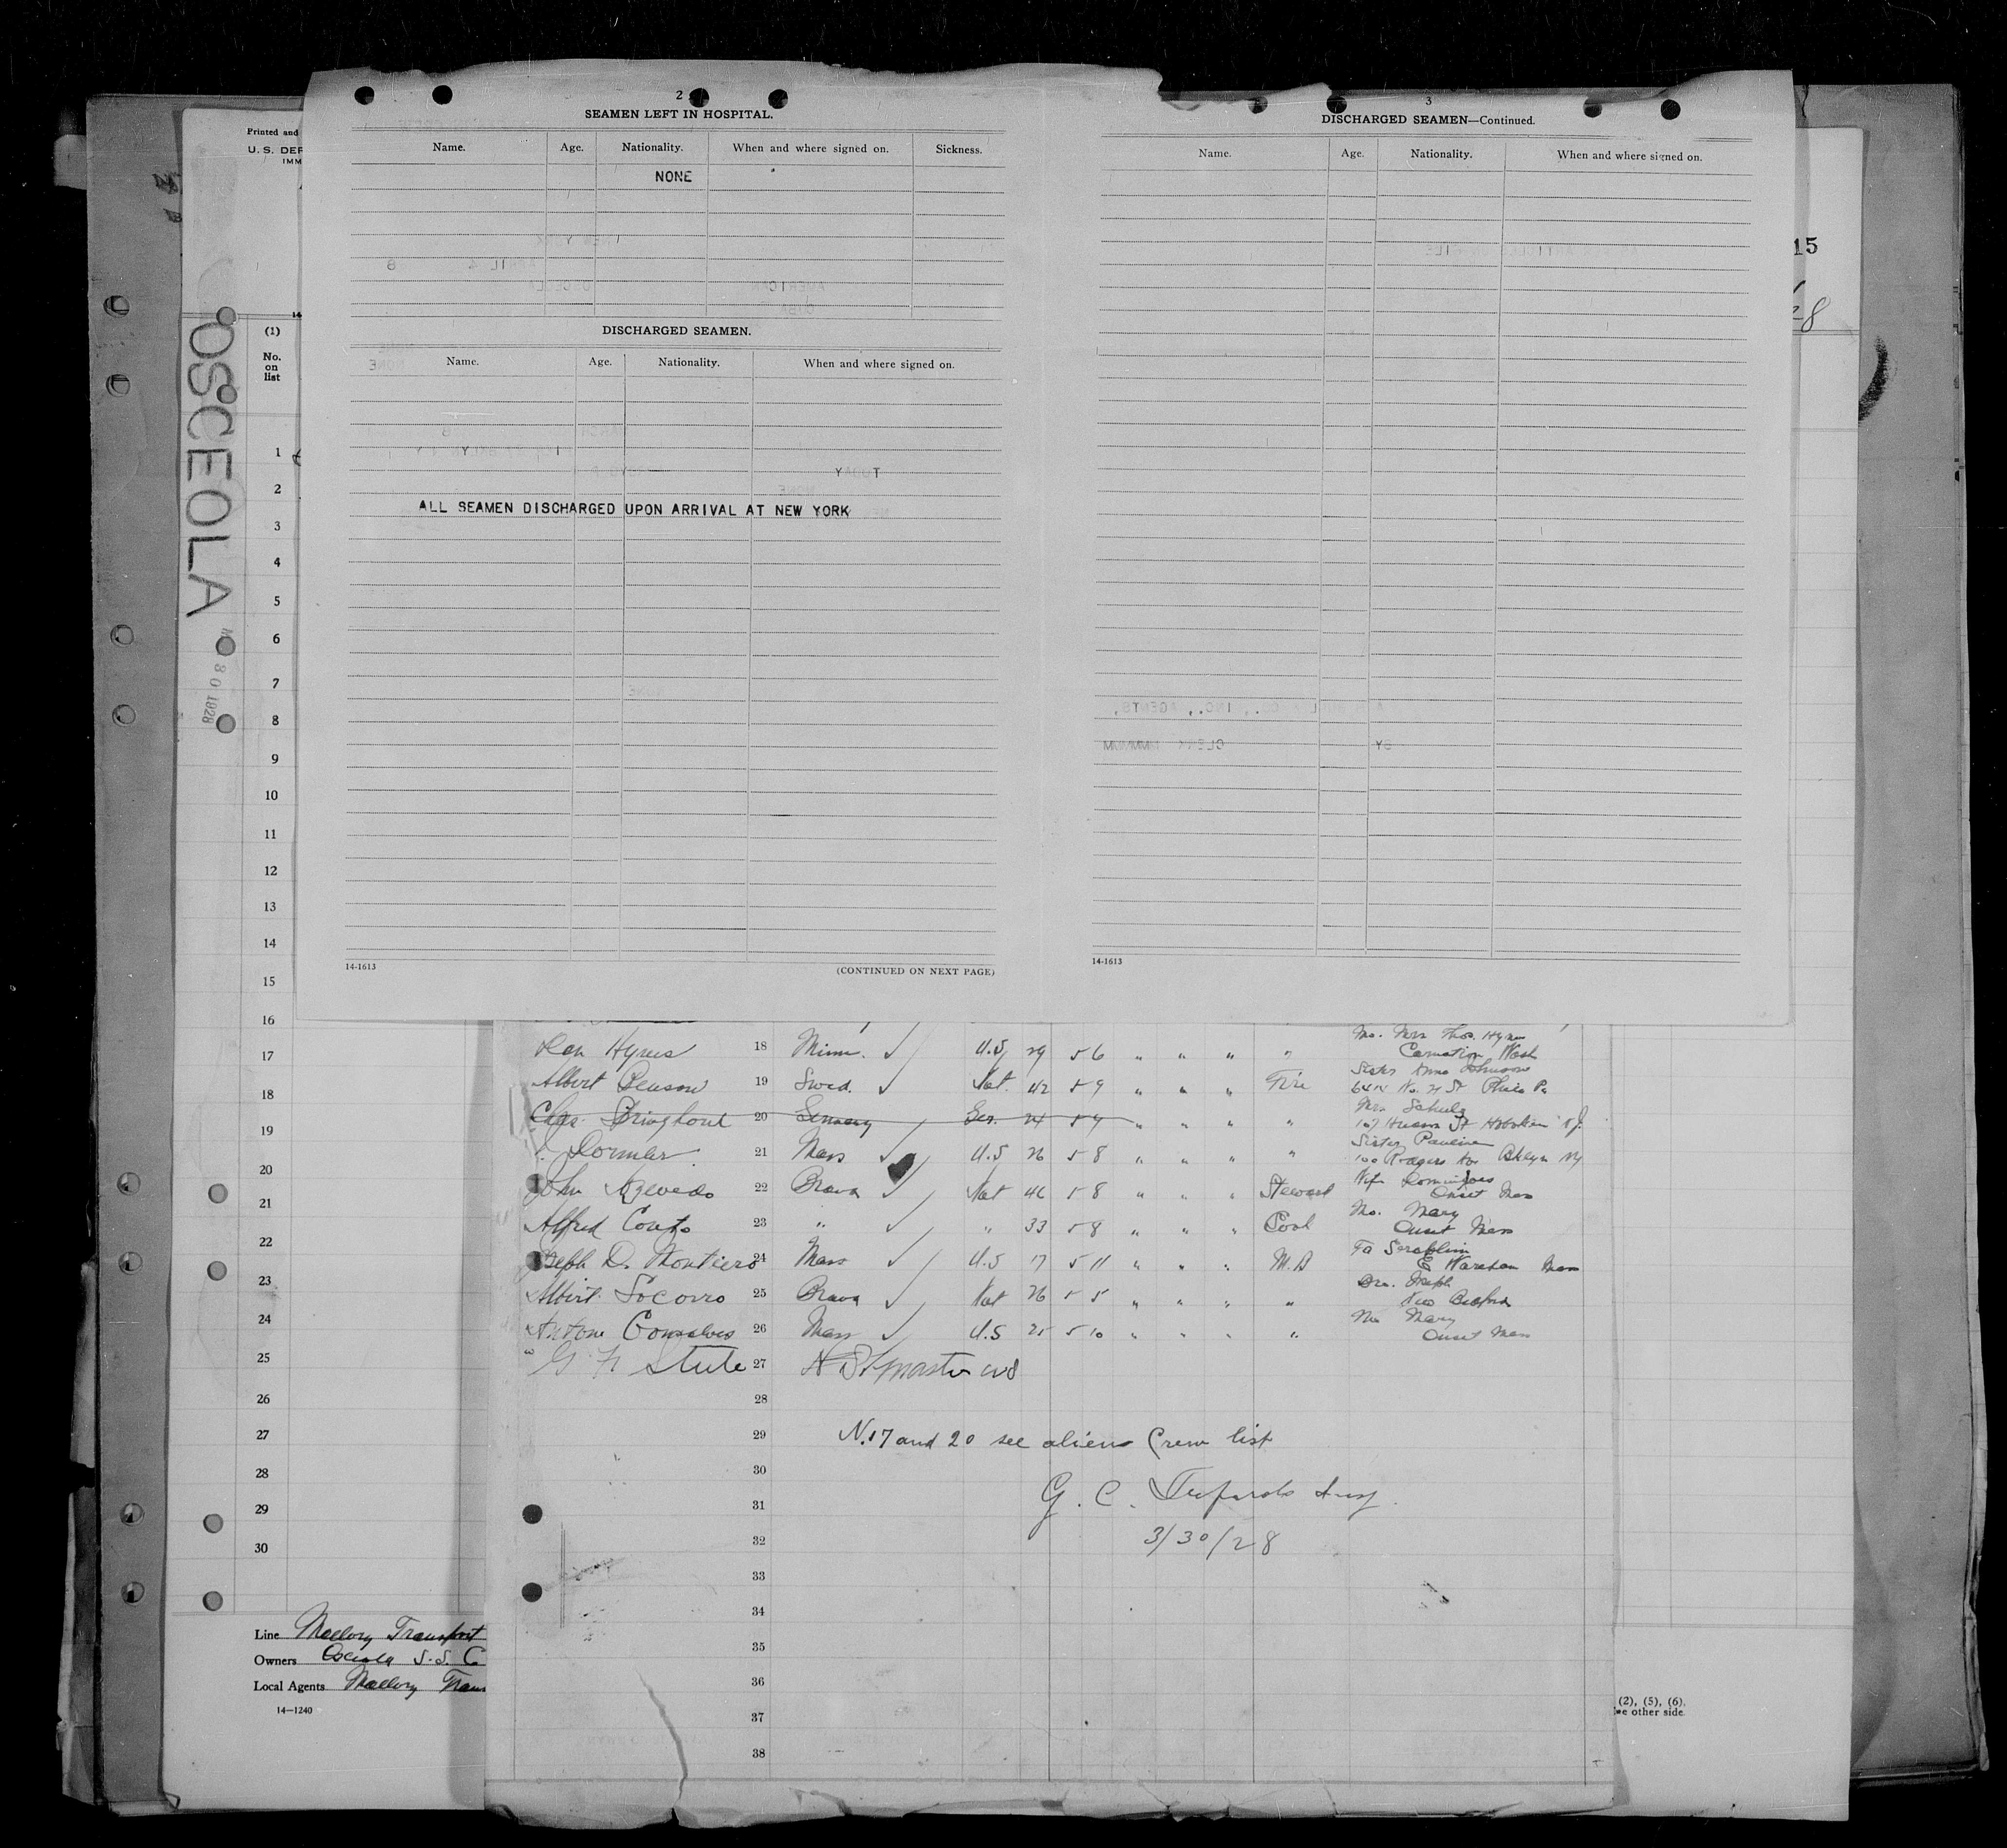 2
SEAMEN LEFT IN HOSPITAL.
Name. Age. Nationality. When and where signed on. Sickness.
NONE
DISCHARGED SEAMEN.
Name. Age. Nationality. When and where signed on.
ALL SEAMEN DISCHARGED UPON ARRIVAL AT NEW YORK
14-1613
(CONTINUED ON NEXT PAGE)
3
DISCHARGED SEAMEN—Continued.
Name. Age. Nationality. When and where signed on.
14-1613
Printed and
U. S. DEP
IMM
15
28
OSCEOLA
8 0 1928
(1)
No.
on
list
1
2
3
4
5
6
7
8
9
10
11
12
13
14
15
16
17
18
19
20
21
22
23
24
25
26
27
28
29
30
Mo. Mrs Thos. Hynes
Hynes 18 Minn. ✓ U.S 29 5 6 " " " " Carnation Wash
Sister Anna Johnson
Albert Benson 19 Swed. ✓ Nat. 42 5 9 " " " Fire Phila Pa
Mrs Schulz
Chas. 20 Germany Ger. 24 5 9 " " " " 107 Hudson St Hoboken N.J.
Sister Pauline
Dormler 21 Mass ✓ U.S 26 5 8 " " " " 100 Rogers Av Bklyn Ny
John Azevedo 22 Brava ✓ Nat 46 5 8 " " " Steward Onset Mass
Mo. Mary
Alfred Couto 23 " ✓ " 33 5 8 " " " Cook Onset Mass
Fa Seraphim
Joseph D. Montiero 24 Mass ✓ U.S 17 5 11 " " " M.B E Wareham Mass
Bro. Joseph
Albert Socorro 25 Brava ✓ Nat 26 5 5 " " " " New Bedford
Mo Mary
Antone Gonsalves 26 Mass ✓ U.S 25 5 10 " " " " Onset Mass
27
28
29 N.17 and 20 see aliens Crew list
30
31 G. C. Insp.
32 3/30/28
33
34
35
36
37
38
Line Mallory Transport
Owners Osceola S.S. C
Local Agents Mallory Trans
14—1240
(2), (5), (6).
e other side.